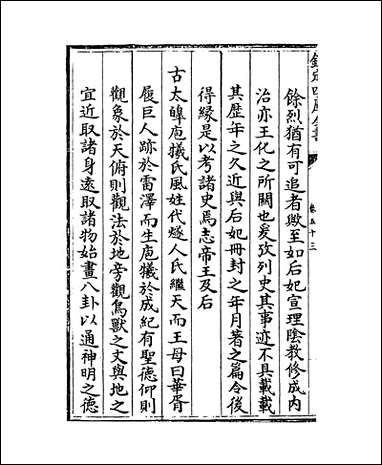 欽定四庫全書
卷五十三
餘烈猶有可追者歟至如后妃宣理陰教修成内
治亦王化之所關也爰攷列史其事迹不具載載
其歴年之久近與后妃冊封之年月著之篇令後
得縁是以考諸史焉志帝王及后
古太皥庖犧氏風姓代燧人氏繼天而王母曰華胥
履巨人跡於雷澤而生庖犧於成紀有聖德仰則
觀象於天俯則觀法於地旁觀鳥獸之文與地之
宜近取諸身遠取諸物始畫八卦以通神明之德